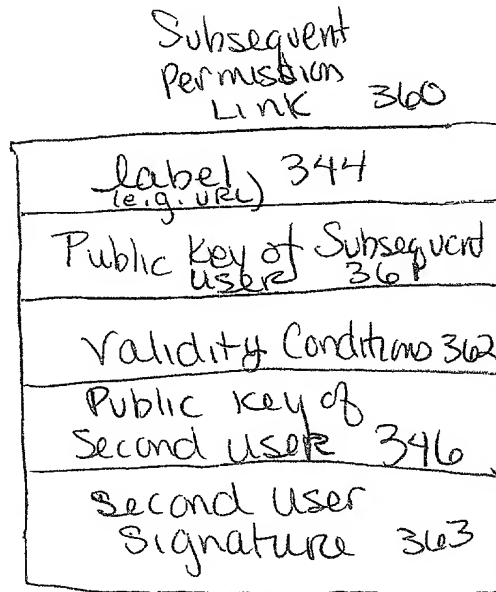 Subsequent
Permission
Link 360
label 344
(e.g. URL)
Public Key of Subsequent
user 361
Validity Conditions 362
Public Key of
Second user 346
Second User
Signature 363